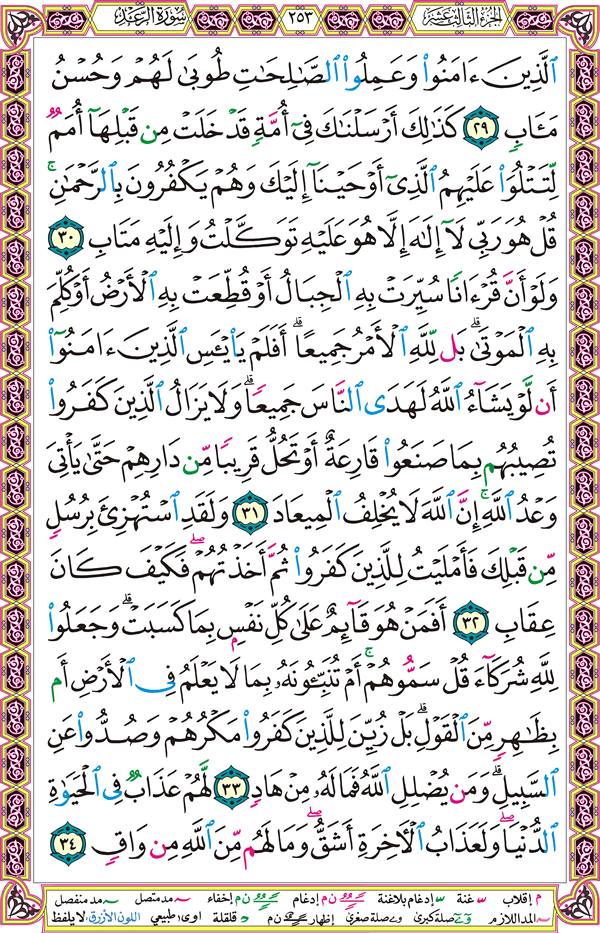 سُورَةُ الرَّعۡدِ ٢٥٣ الجزء الثالث عشر
ٱلَّذِينَ ءَامَنُواْ وَعَمِلُواْ ٱلصَّـٰلِحَـٰتِ طُوبَىٰ لَهُمۡ وَحُسۡنُ
مَـَٔابٖ ٢٩ كَذَٰلِكَ أَرۡسَلۡنَـٰكَ فِيٓ أُمَّةٖ قَدۡ خَلَتۡ مِن قَبۡلِهَآ أُمَمٞ
لِّتَتۡلُوَاْ عَلَيۡهِمُ ٱلَّذِيٓ أَوۡحَيۡنَآ إِلَيۡكَ وَهُمۡ يَكۡفُرُونَ بِٱلرَّحۡمَـٰنِۚ
قُلۡ هُوَ رَبِّي لَآ إِلَـٰهَ إِلَّا هُوَ عَلَيۡهِ تَوَكَّلۡتُ وَإِلَيۡهِ مَتَابِ ٣٠
وَلَوۡ أَنَّ قُرۡءَانٗا سُيِّرَتۡ بِهِ ٱلۡجِبَالُ أَوۡ قُطِّعَتۡ بِهِ ٱلۡأَرۡضُ أَوۡ كُلِّمَ
بِهِ ٱلۡمَوۡتَىٰۗ بَل لِّلَّهِ ٱلۡأَمۡرُ جَمِيعًاۗ أَفَلَمۡ يَاْيۡـَٔسِ ٱلَّذِينَ ءَامَنُوٓاْ
أَن لَّوۡ يَشَآءُ ٱللَّهُ لَهَدَى ٱلنَّاسَ جَمِيعٗاۗ وَلَا يَزَالُ ٱلَّذِينَ كَفَرُواْ
تُصِيبُهُم بِمَا صَنَعُواْ قَارِعَةٌ أَوۡ تَحُلُّ قَرِيبٗا مِّن دَارِهِمۡ حَتَّىٰ يَأۡتِيَ
وَعۡدُ ٱللَّهِۚ إِنَّ ٱللَّهَ لَا يُخۡلِفُ ٱلۡمِيعَادَ ٣١ وَلَقَدِ ٱسۡتُهۡزِئَ بِرُسُلٖ
مِّن قَبۡلِكَ فَأَمۡلَيۡتُ لِلَّذِينَ كَفَرُواْ ثُمَّ أَخَذۡتُهُمۡۖ فَكَيۡفَ كَانَ
عِقَابِ ٣٢ أَفَمَنۡ هُوَ قَآئِمٌ عَلَىٰ كُلِّ نَفۡسِۭ بِمَا كَسَبَتۡۗ وَجَعَلُواْ
لِلَّهِ شُرَكَآءَ قُلۡ سَمُّوهُمۡۚ أَمۡ تُنَبِّـُٔونَهُۥ بِمَا لَا يَعۡلَمُ فِي ٱلۡأَرۡضِ أَم
بِظَـٰهِرٖ مِّنَ ٱلۡقَوۡلِۗ بَلۡ زُيِّنَ لِلَّذِينَ كَفَرُواْ مَكۡرُهُمۡ وَصُدُّواْ عَنِ
ٱلسَّبِيلِۗ وَمَن يُضۡلِلِ ٱللَّهُ فَمَا لَهُۥ مِنۡ هَادٖ ٣٣ لَّهُمۡ عَذَابٞ فِي ٱلۡحَيَوٰةِ
ٱلدُّنۡيَاۖ وَلَعَذَابُ ٱلۡأٓخِرَةِ أَشَقُّۖ وَمَا لَهُم مِّنَ ٱللَّهِ مِن وَاقٖ ٣٤
م إقلاب غنة إدغام بلاغنة ن م إدغام ن م إخفاء مد متصل مد منفصل
المد اللازم صلة كبرى صلة صغرى إظهار ن م قلقلة اوى: طبيعي اللون الأزرق: لا يلفظ